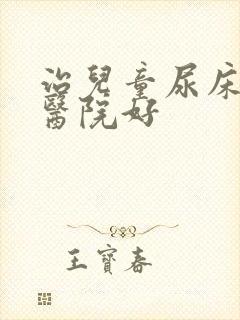 治兒童尿床
醫院好
王寶春